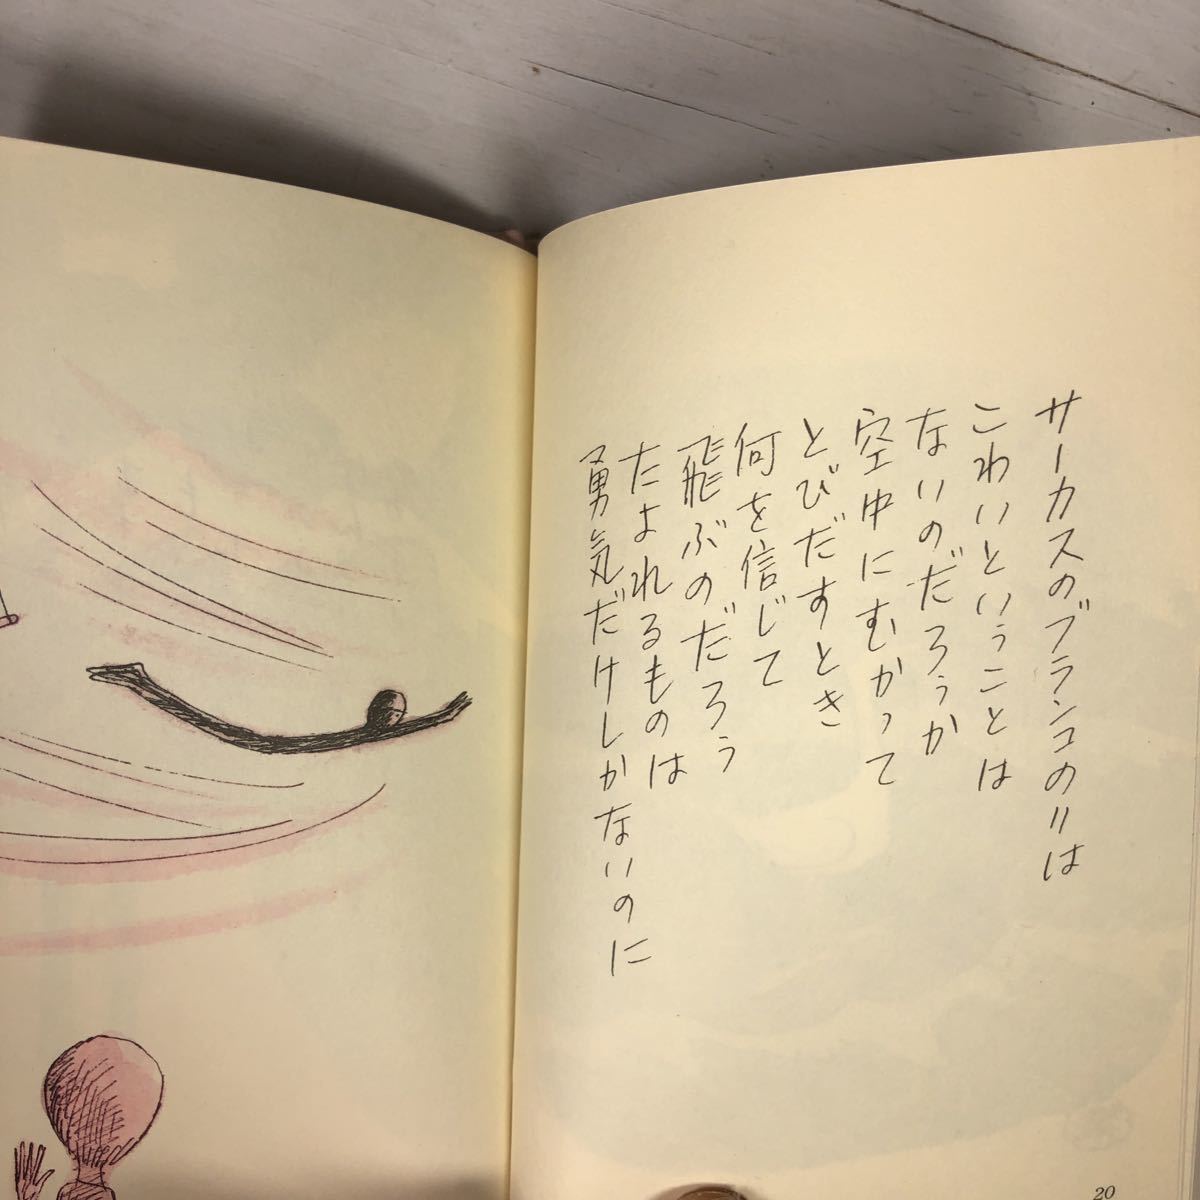 サーカスのブランコのりは
こわいということは
ないのだろうか
空中にむかって
とびだすとき
何を信じて
飛ぶのだろう
たよれるものは
勇気だけしかないのに
20